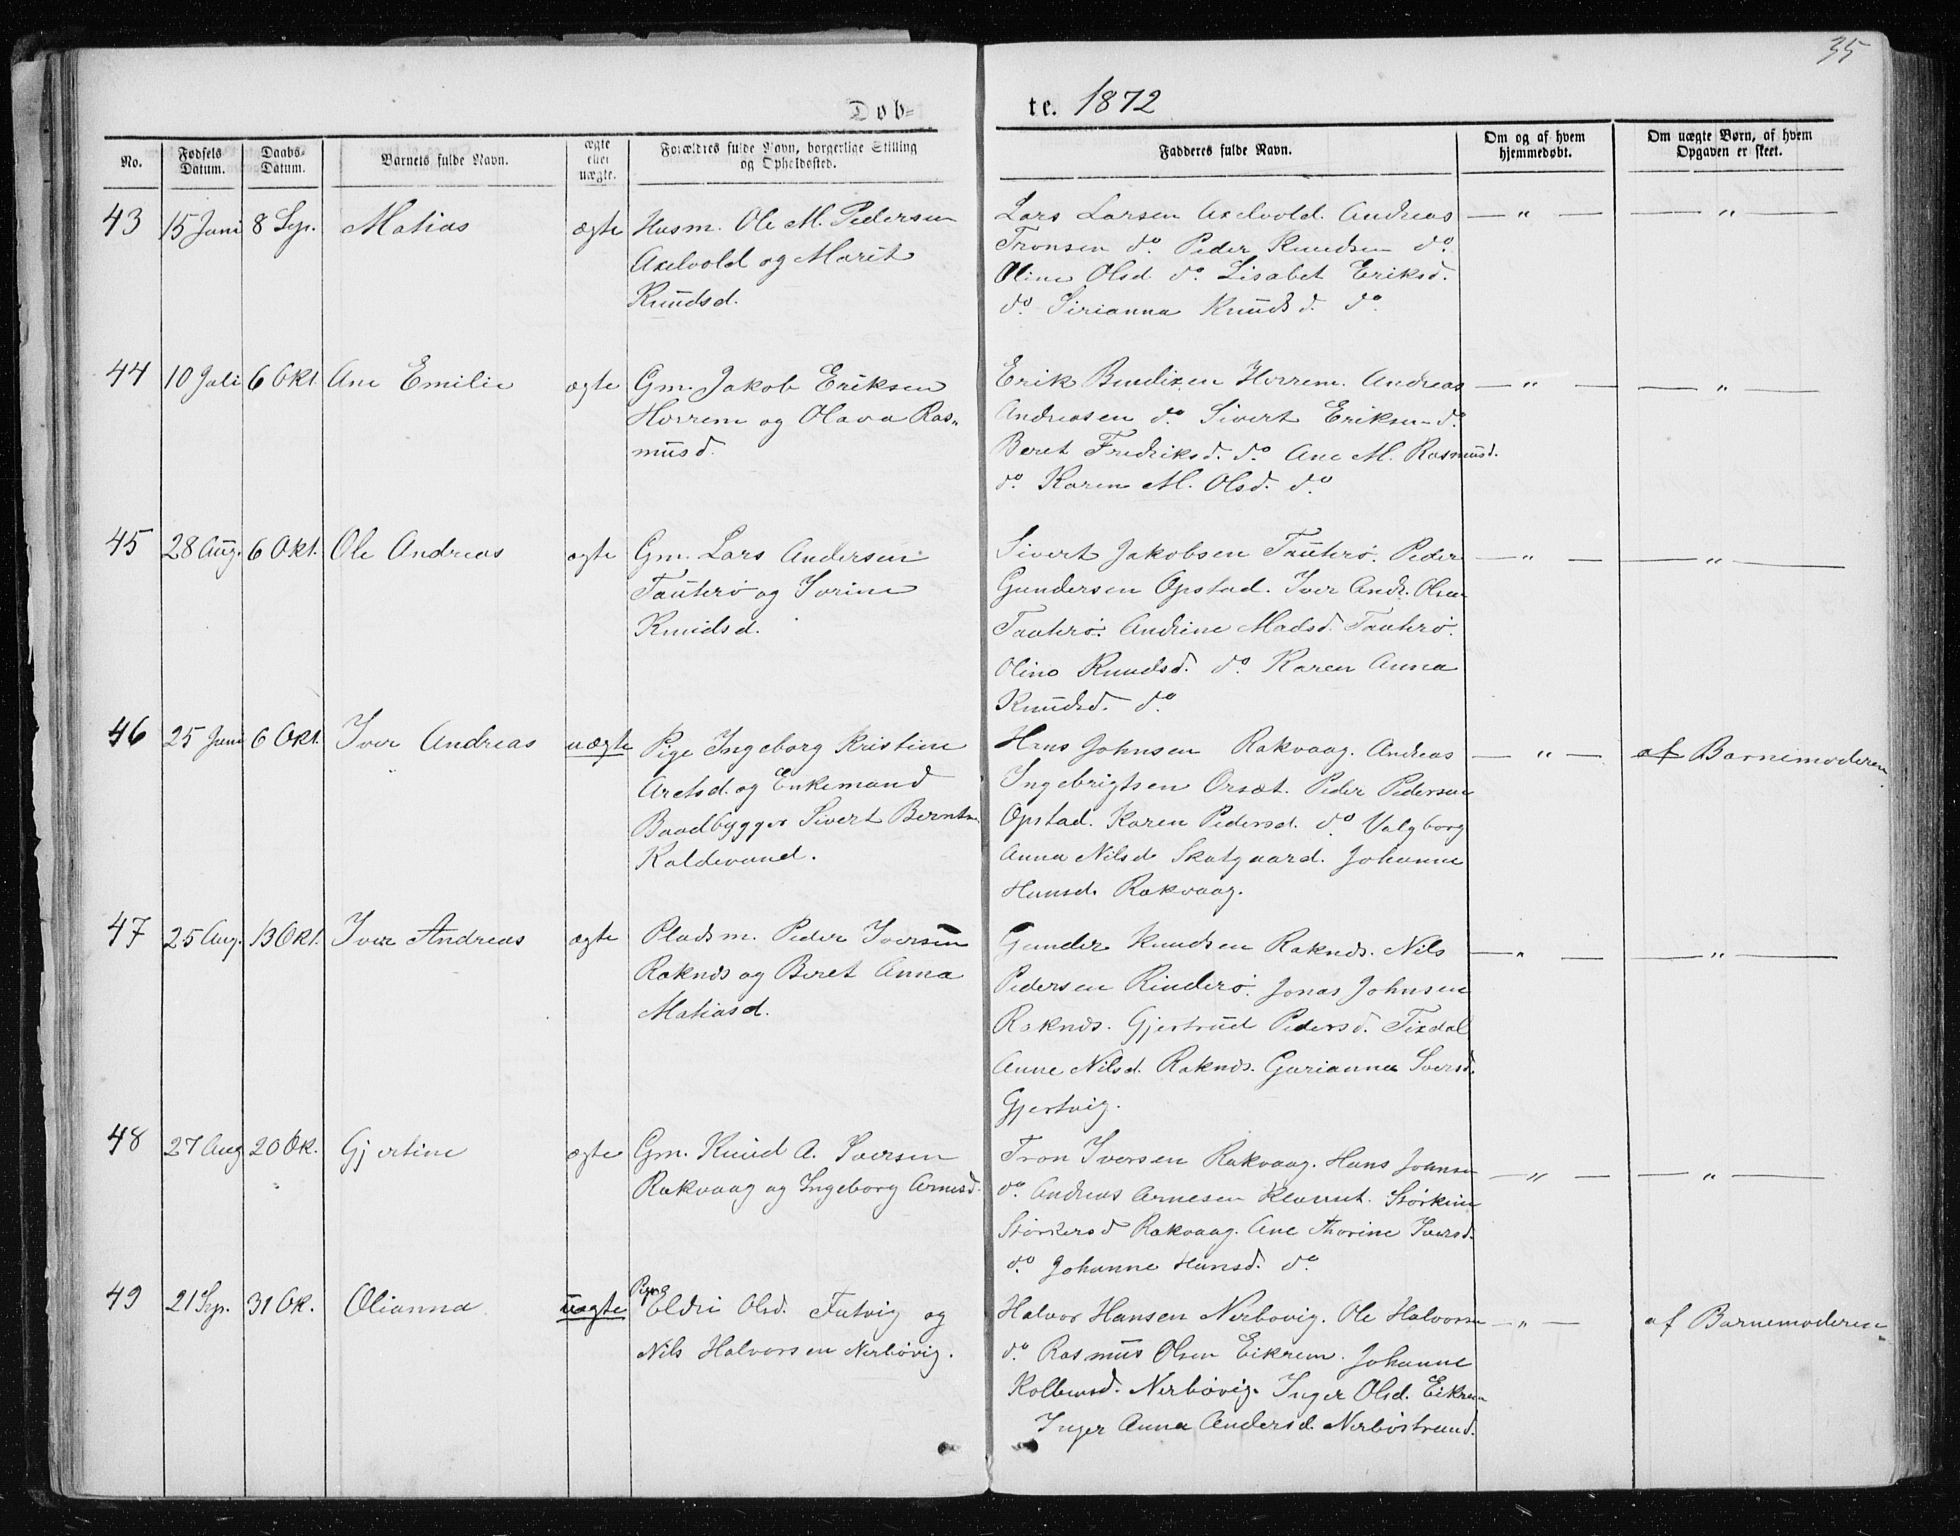 35
Døb= te. 1872
No. Fødsels Datum. Daabs= Datum. Barnets fulde Navn. ægte eller uægte. Forældres fulde Navn, borgerlige Stilling og Opholdssted. Faddernes fulde Navn. Om og af hvem hjemmedøbt. Om uægte Børn, af hvem Opgaven er skeet.
43 15 Juni 8 Sep. Matias ægte Husm. Ole M. Pedersen
Axelvold og Marit
Knudsd.
Lars Larsen Axelvold. Andreas — " — — " —
Tronsen do. Peder Knudsen do.
Oline Olsd do Lisabet Eriksd.
do Sirianna Knudsd. do
44 10 Juli 6 Okt. Ane Emilie ægte Gm. Jakob Eriksen
Horrem og Olava Ras=
musd.
Erik Bendixen Horrem. Andreas — " — — " —
Andreasen do. Sivert Eriksen do.
Beret Fredriksd. do Ane M. Rasmusd.
do. Karen M. Olsd. do
45 28 Aug. 6 Okt. Ole Andreas ægte Gm. Lars Andersen
Tauterø og Iverine
Knudsd.
Sivert Jakobsen Tauterø. Peder — " — — " —
Gundersen Opstad. Iver Andr. Olsen
Tauterø. Andrine Madsd. Tauterø.
Oline Knudsd. do Karen Anna
Knudsd. do
46 25 Juni 6 Okt. Iver Andreas uægte Pige Ingeborg Kristine
Aretsd. og Enkemand
Baadbygger Sivert Berntsen
Koldevand.
Hans Johnsen Rakvaag. Andreas — " — af Barnemoderen
Ingebrigtsen Orsæt. Peder Pedersen
Opstad. Karen Pedersd. do Valgborg
Anna Nilsd Skatgaard. Johanne
Hansd. Rakvaag.
47 25 Aug. 13 Okt. Iver Andreas ægte Pladsm. Peder Iversen
Raknæs og Beret Anna
Matiasd.
Gunder Knudsen Raknæs. Nils — " — — " —
Pedersen Rinderø. Jonas Johnsen
Raknæs. Gjertrud Pedersd. Tixdal
Anne Nilsd. Raknæs. Gurianna Iversd.
Gjertvig.
48 27 Aug 20 Ok. Gjertine ægte Gm. Knud A. Iversen
Rakvaag og Ingeborg Arnesd.
Tron Iversen Rakvaag. Hans Johnsen — " — — " —
do. Andreas Arnesen Klavnt. Størkine
Størkersd Rakvaag. Ane Thorine Iversd.
do. Johanne Hansd. do
49 21 Sep. 31 Ok. Olianna uægte Pigen Eldri Olsd. Futvig og
Nils Halvorsen Nerbøvig.
Halvor Hansen Nerbovig. Ole Halvorsen — " — af Barnemoderen
do. Rasmus Olsen Eikrem. Johanne
Kolbensd. Nerbøvig. Inger Olsd. Eikrem
Inger Anna Andersd. Nerbøstrand.